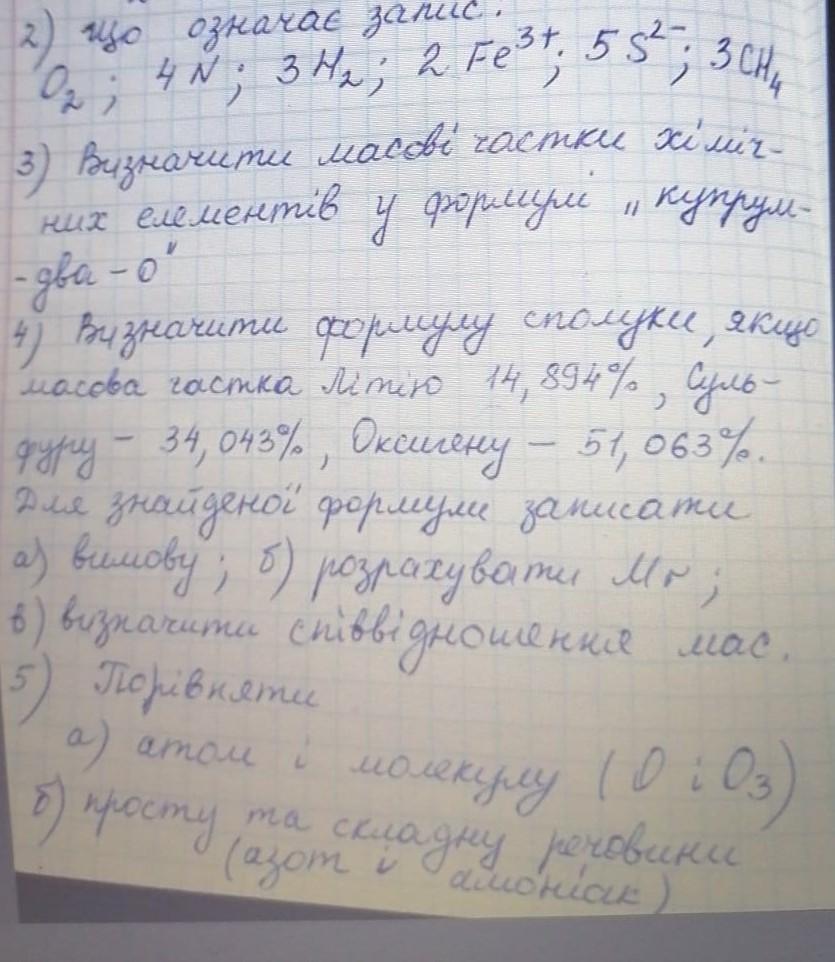 2) що означає запис.
O₂; 4N; 3H₂; 2Fe³⁺; 5S²⁻; 3CH₄
3) Визначити масові частки хіміч-
них елементів у формулі „купрум-
-два-О"
4) Визначити формулу сполуки, якщо
масова частка Літію 14,894%, Суль-
фуру - 34,043%, Оксигену - 51,063%.
Для знайденої формули записати
а) вимову; б) розрахувати Mr;
в) визначити співвідношення мас.
5) Порівняти
а) атом і молекулу (O і O₃)
б) просту та складну речовини
(азот і амоніак)